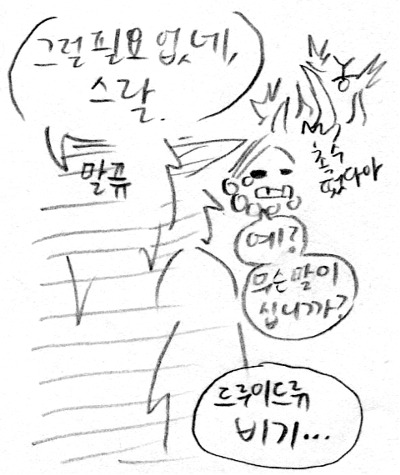 그럴 필요 없네,
스랄.
말퓨
초수
떴다아
예?
무슨 말이
십니까?
드루이드류
비기...